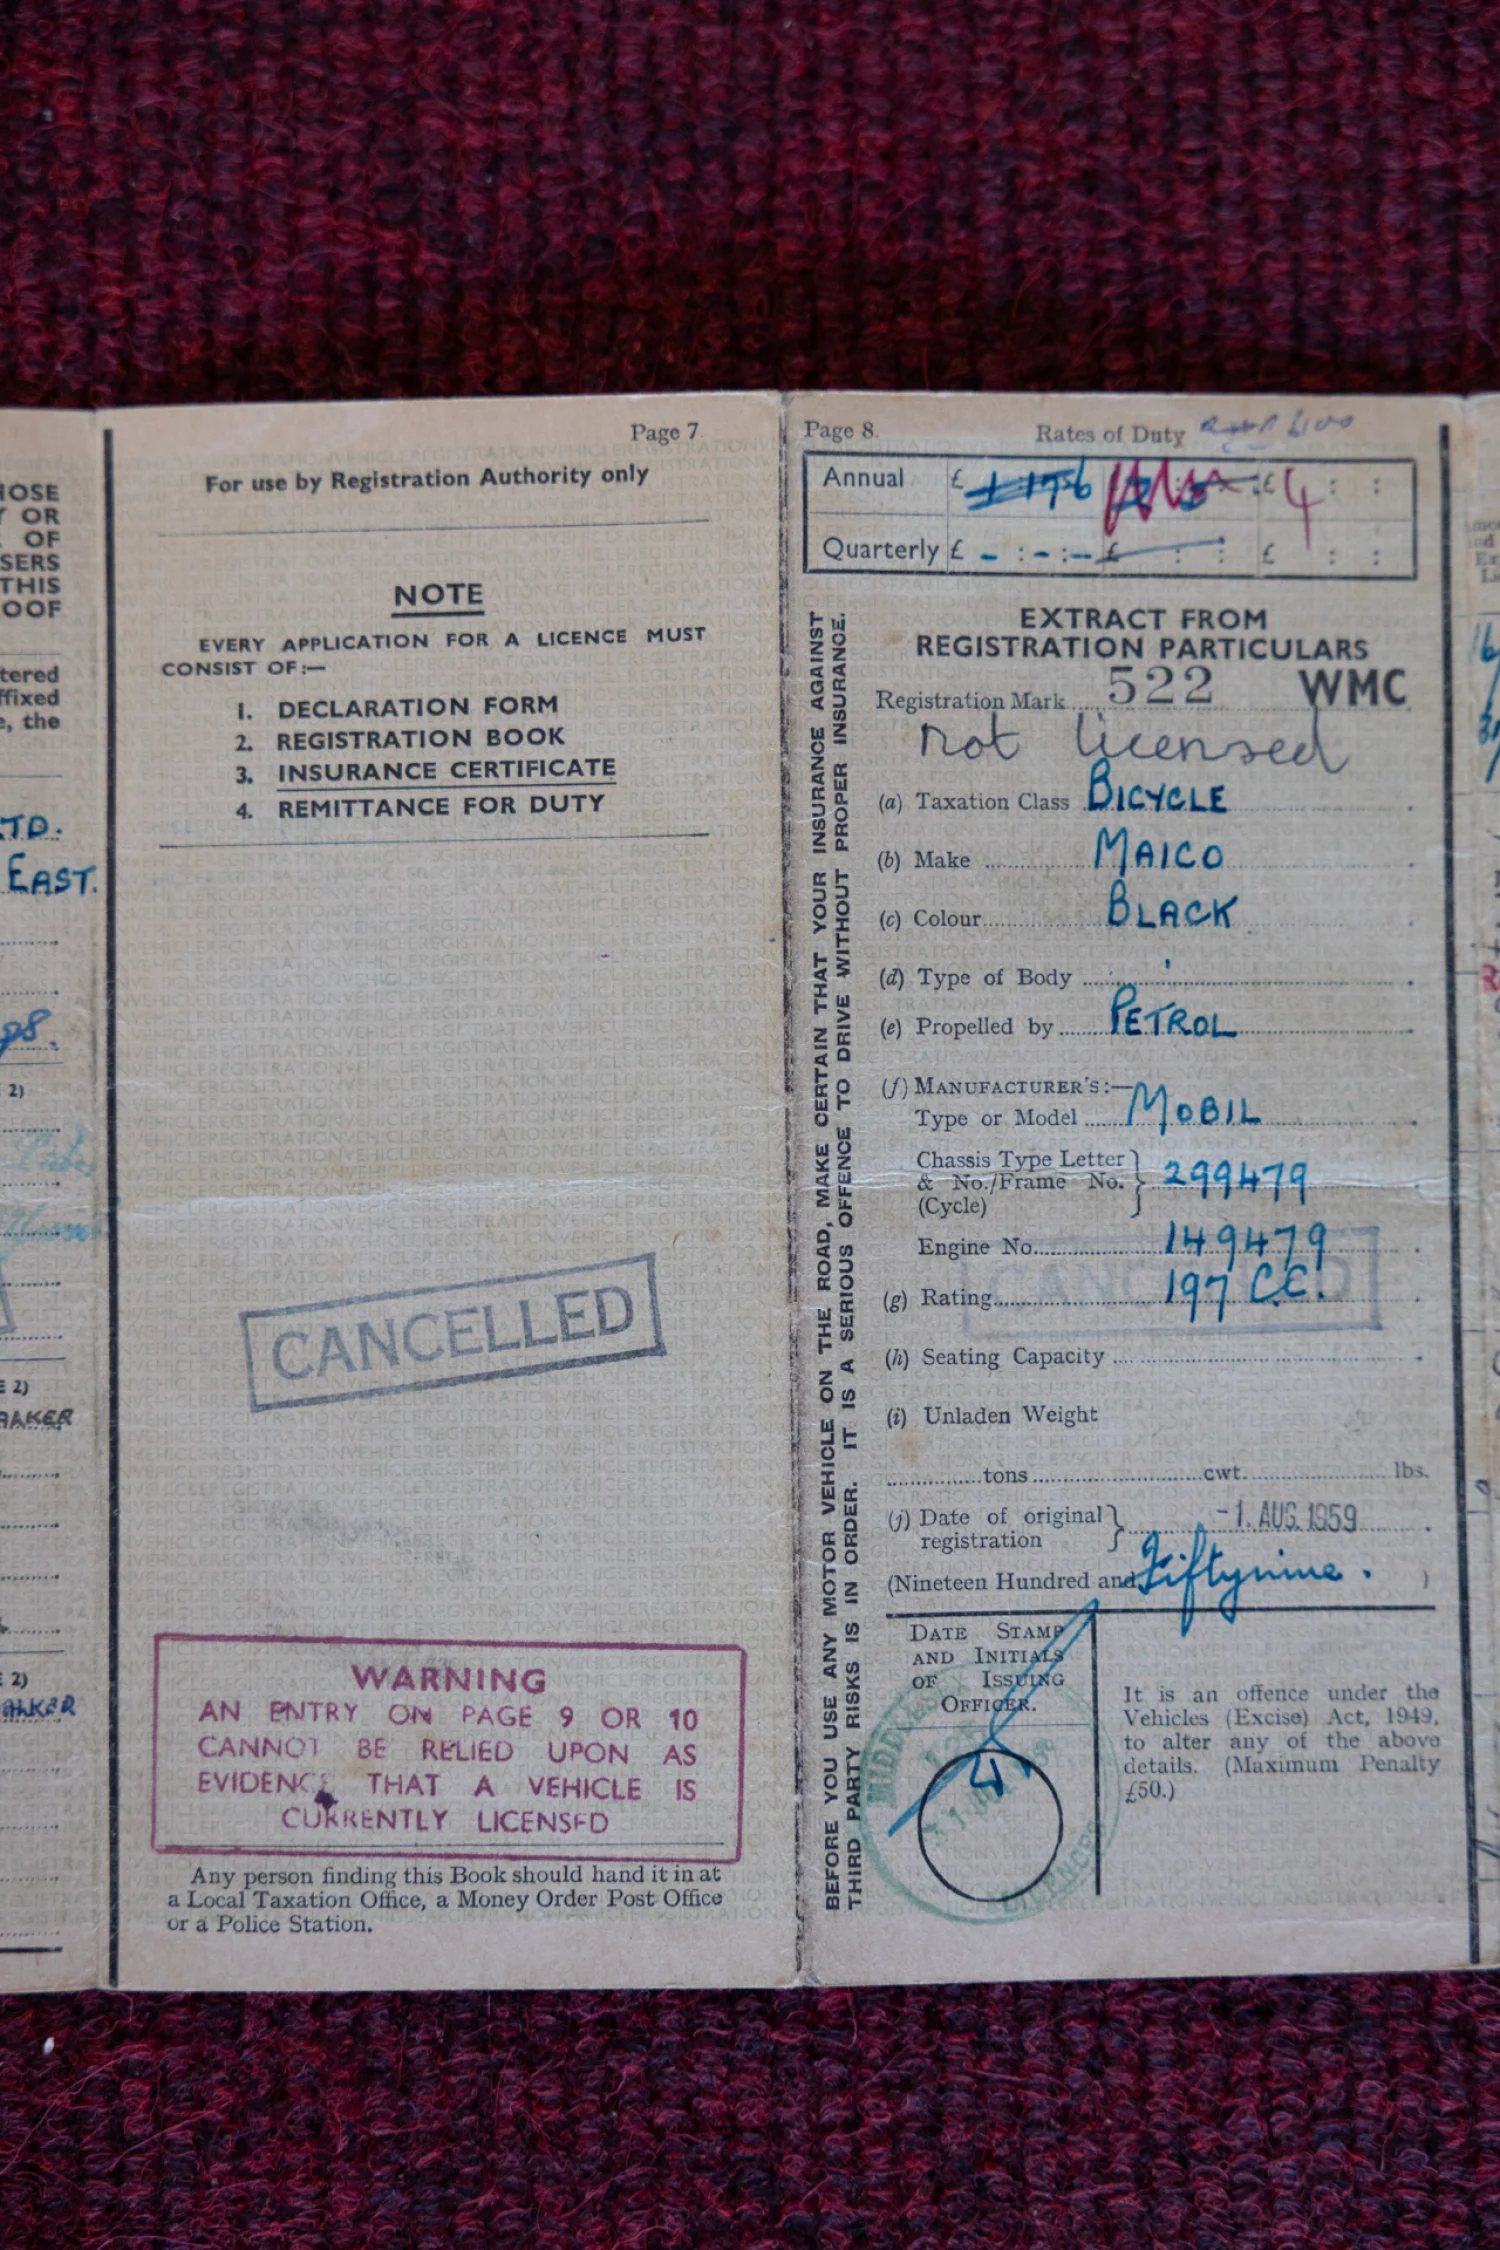 HOSE
OR
OF
SERS
THIS
OOF
tered
ffixed
e, the
LTD.
EAST.
2)
E 2)
ALKER
2)
ALKER
Page 7
For use by Registration Authority only
NOTE
EVERY APPLICATION FOR A LICENCE MUST
CONSIST OF:—
1. DECLARATION FORM
2. REGISTRATION BOOK
3. INSURANCE CERTIFICATE
4. REMITTANCE FOR DUTY
CANCELLED
WARNING
AN ENTRY ON PAGE 9 OR 10
CANNOT BE RELIED UPON AS
EVIDENCE THAT A VEHICLE IS
CURRENTLY LICENSED
Any person finding this Book should hand it in at
a Local Taxation Office, a Money Order Post Office
or a Police Station.
BEFORE YOU USE ANY MOTOR VEHICLE ON THE ROAD, MAKE CERTAIN THAT YOUR INSURANCE AGAINST
THIRD PARTY RISKS IS IN ORDER. IT IS A SERIOUS OFFENCE TO DRIVE WITHOUT PROPER INSURANCE.
Page 8.
Rates of Duty
Annual £ 1 17 6 £ 4 : :
Quarterly £ - : - : - £ : : £ : :
EXTRACT FROM
REGISTRATION PARTICULARS
Registration Mark 522 WMC
not licensed
(a) Taxation Class BICYCLE
(b) Make MAICO
(c) Colour BLACK
(d) Type of Body
(e) Propelled by PETROL
(f) MANUFACTURER'S:—
Type or Model MOBIL
Chassis Type Letter
& No./Frame No. 299479
(Cycle)
Engine No. 149479
(g) Rating 197 C.C.
CANCELLED
(h) Seating Capacity
(i) Unladen Weight
tons cwt. lbs.
(j) Date of original
registration -1. AUG. 1959
(Nineteen Hundred and Fiftynine. )
DATE STAMP
AND INITIALS
OF ISSUING
OFFICER.
It is an offence under the
Vehicles (Excise) Act, 1949,
to alter any of the above
details. (Maximum Penalty
£50.)